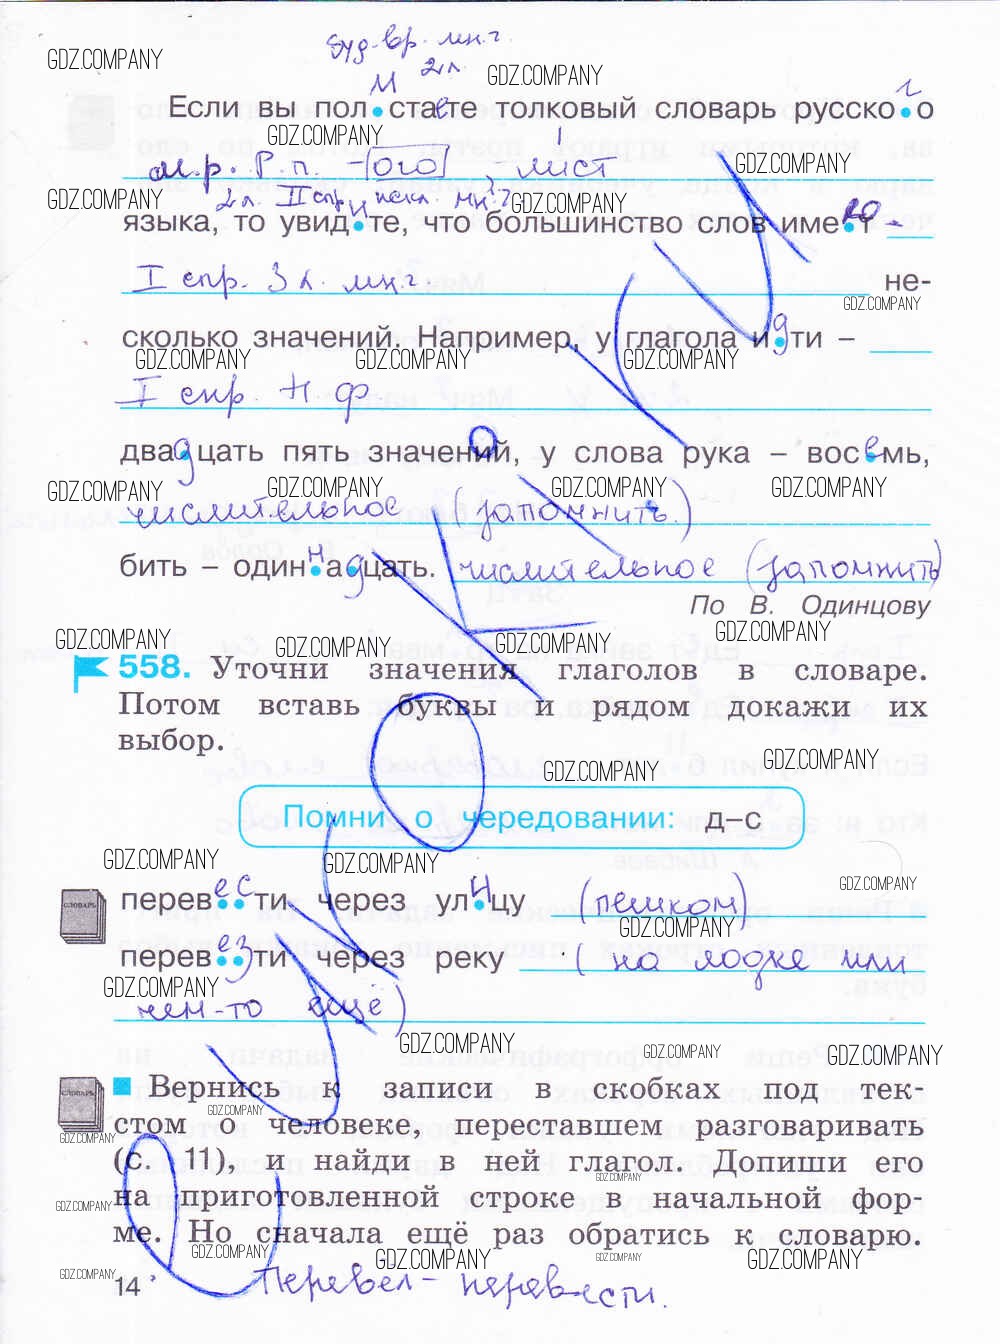 буд. вр. мн. г
GDZ.COMPANY 2 л. GDZ.COMPANY
Если вы пол и стаете толковый словарь русско г о
GDZ.COMPANY
м. р. Р. п. - ого - лист GDZ.COMPANY
GDZ.COMPANY 2 л. II спр, искл. мн. г. GDZ.COMPANY
языка, то увид и те, что большинство слов име ю т -
I спр. 3 л. мн. г не-
GDZ.COMPANY
сколько значений. Например, у глагола и д ти –
GDZ.COMPANY GDZ.COMPANY GDZ.COMPANY
I спр. Н ф
два д цать пять значений, у слова рука – вос е мь,
GDZ.COMPANY GDZ.COMPANY GDZ.COMPANY GDZ.COMPANY
числительное (запомнить.)
бить – один н а д цать. числительное (запомнить)
По В. Одинцову
GDZ.COMPANY GDZ.COMPANY GDZ.COMPANY GDZ.COMPANY
558. Уточни значения глаголов в словаре.
Потом вставь буквы и рядом докажи их
выбор.
GDZ.COMPANY GDZ.COMPANY
Помни о чередовании: д–с
GDZ.COMPANY GDZ.COMPANY GDZ.COMPANY
СЛОВАРЬ перев ес ти через ул и цу (пешком)
GDZ.COMPANY
перев ез ти через реку (на лодке или
GDZ.COMPANY
чем-то ещё)
GDZ.COMPANY GDZ.COMPANY GDZ.COMPANY
СЛОВАРЬ Вернись к записи в скобках под тек-
GDZ.COMPANY
стом о человеке, переставшем разговаривать
GDZ.COMPANY
(с. 11), и найди в ней глагол. Допиши его
GDZ.COMPANY
на приготовленной строке в начальной фор-
GDZ.COMPANY
ме. Но сначала ещё раз обратись к словарю.
GDZ.COMPANY GDZ.COMPANY GDZ.COMPANY GDZ.COMPANY
GDZ.COMPANY
14 Перевел - перевести.